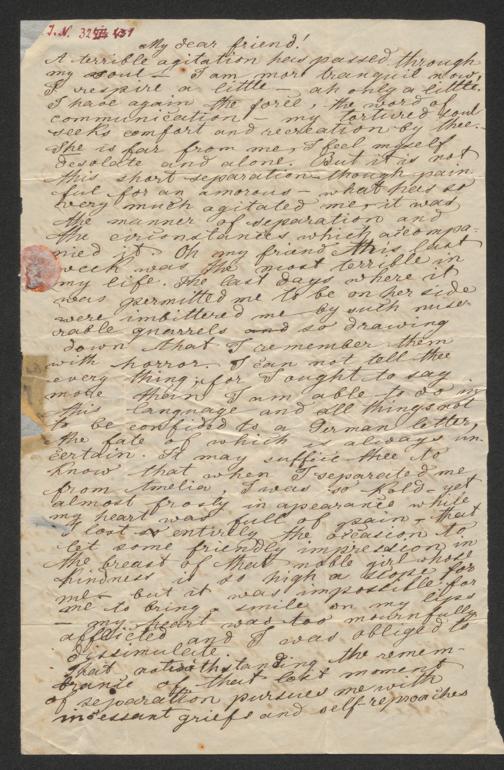 I.N. 32
My dear friend!
A terrible agitation has passed through
my soul – I am more tranquil now,
I respire a little – ah only a little.
I have again the force, the word of
communication – my tortured soul
seeks comfort and recreation by thee.
She is far from me, I feel myself
desolate and alone. But it is not
this short separation though pain
ful for an amorous – what has so
very much agitated me, it was
the manner of separation and
the circonstances which accompa-
nied it. Oh my friend this last
week was the most terrible in
my life. The last days where it
was permitted me to be on her side
were imbittered me by such mise-
rable quarrels and so drawing
down that I remember them
with horror. I can not tell thee
every thing, for I ought to say
more than I am able to do in
this language and all things not
to be confided to a German letter,
the fate of which is always un-
certain. It may suffice thee to
know that when I separated me
from Amelia, I was so kold – yet
almost frosty in apearance while
my heart was full of pain – that
I lost entirely the occasion to
let some friendly impression in
the breast of that noble girl whose
kindness is so high a for
me – but it was impossible for
me to bring a smile on my lips
– my heart was too mournfully
afflicted and I was obliged to
dissimulate.
That notwithstanding the remem-
brance of that last moment
of separation pursues me with
incessant griefs and self-reproaches